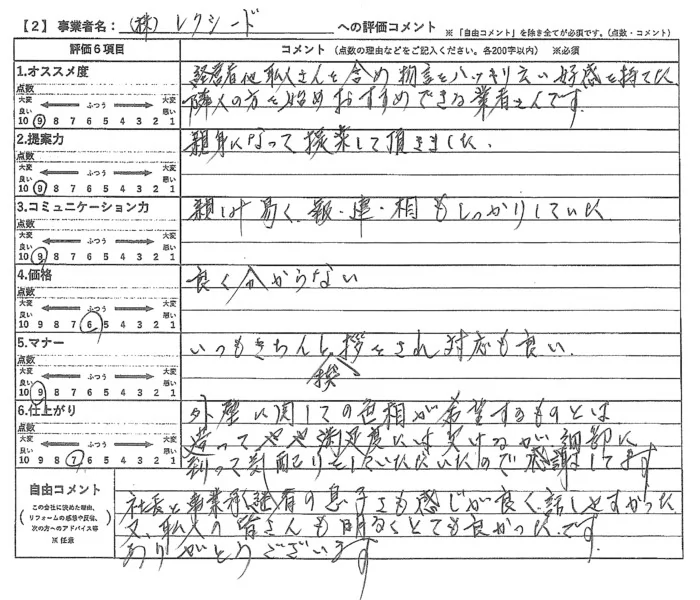 【2】事業者名：（株）レクシード への評価コメント ※「自由コメント」を除き全てが必須です。（点数・コメント）
評価６項目 コメント（点数の理由などをご記入ください。各200字以内）※必須
1.オススメ度
点数
大変良い ふつう 大変悪い
10 9 8 7 6 5 4 3 2 1
経営者他職人さんを含め物言をハッキリ云い好感を持てた
隣人の方を始めおすすめできる業者さんです。
2.提案力
点数
大変良い ふつう 大変悪い
10 9 8 7 6 5 4 3 2 1
親身になって提案して頂きました。
3.コミュニケーション力
点数
大変良い ふつう 大変悪い
10 9 8 7 6 5 4 3 2 1
親しみ易く、報・連・相もしっかりしていた
4.価格
点数
大変良い ふつう 大変悪い
10 9 8 7 6 5 4 3 2 1
良く分からない
5.マナー
点数
大変良い ふつう 大変悪い
10 9 8 7 6 5 4 3 2 1
いつもきちんと挨拶をされ対応も良い。
6.仕上がり
点数
大変良い ふつう 大変悪い
10 9 8 7 6 5 4 3 2 1
外壁に関しての色相が希望するものとは
違ってやや満足度には欠けるが細部に
目配りをしていただいたので感謝してます
自由コメント
（この会社に決めた理由、リフォームの感想や反省、次の方へのアドバイス等）
※任意
社長と事業承継者の息子さも感じが良く、話しやすかった
又、職人の皆さんも明るくとても良かったです。
ありがとうございます